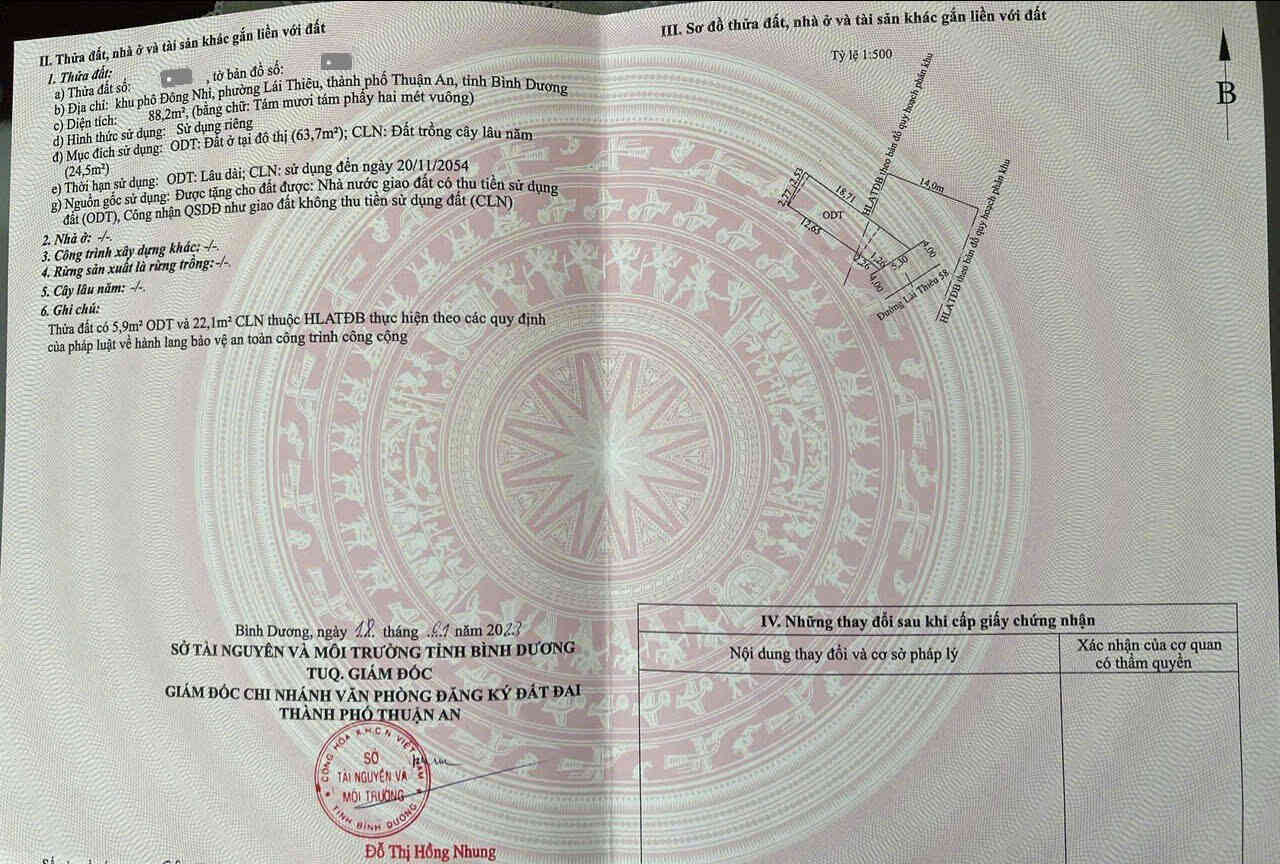 II. Thửa đất, nhà ở và tài sản khác gắn liền với đất
1. Thửa đất:
a) Thửa đất số: , tờ bản đồ số:
b) Địa chỉ: khu phố Đông Nhì, phường Lái Thiêu, thành phố Thuận An, tỉnh Bình Dương
c) Diện tích: 88,2m², (bằng chữ: Tám mươi tám phẩy hai mét vuông)
d) Hình thức sử dụng: Sử dụng riêng
đ) Mục đích sử dụng: ODT: Đất ở tại đô thị (63,7m²); CLN: Đất trồng cây lâu năm
(24,5m²)
e) Thời hạn sử dụng: ODT: Lâu dài; CLN: sử dụng đến ngày 20/11/2054
g) Nguồn gốc sử dụng: Được tặng cho đất được: Nhà nước giao đất có thu tiền sử dụng
đất (ODT), Công nhận QSDĐ như giao đất không thu tiền sử dụng đất (CLN)
2. Nhà ở: -/-.
3. Công trình xây dựng khác: -/-.
4. Rừng sản xuất là rừng trồng: -/-.
5. Cây lâu năm: -/-.
6. Ghi chú:
Thửa đất có 5,9m² ODT và 22,1m² CLN thuộc HLATĐB thực hiện theo các quy định
của pháp luật về hành lang bảo vệ an toàn công trình công cộng
Bình Dương, ngày 18 tháng 01 năm 2023
SỞ TÀI NGUYÊN VÀ MÔI TRƯỜNG TỈNH BÌNH DƯƠNG
TUQ. GIÁM ĐỐC
GIÁM ĐỐC CHI NHÁNH VĂN PHÒNG ĐĂNG KÝ ĐẤT ĐAI
THÀNH PHỐ THUẬN AN
CỘNG HÒA X.H.C.N VIỆT NAM
SỞ
TÀI NGUYÊN VÀ
MÔI TRƯỜNG
TỈNH BÌNH DƯƠNG
Đỗ Thị Hồng Nhung
III. Sơ đồ thửa đất, nhà ở và tài sản khác gắn liền với đất
Tỷ lệ 1:500
B
HLATĐB theo bản đồ quy hoạch phân khu
14,0m
HLATĐB theo bản đồ quy hoạch phân khu
2,53
2,77
18,71
ODT
12,65
2,26
1,26
4,00
5,30
4,00
Đường Lái Thiêu 58
IV. Những thay đổi sau khi cấp giấy chứng nhận
Nội dung thay đổi và cơ sở pháp lý
Xác nhận của cơ quan
có thẩm quyền